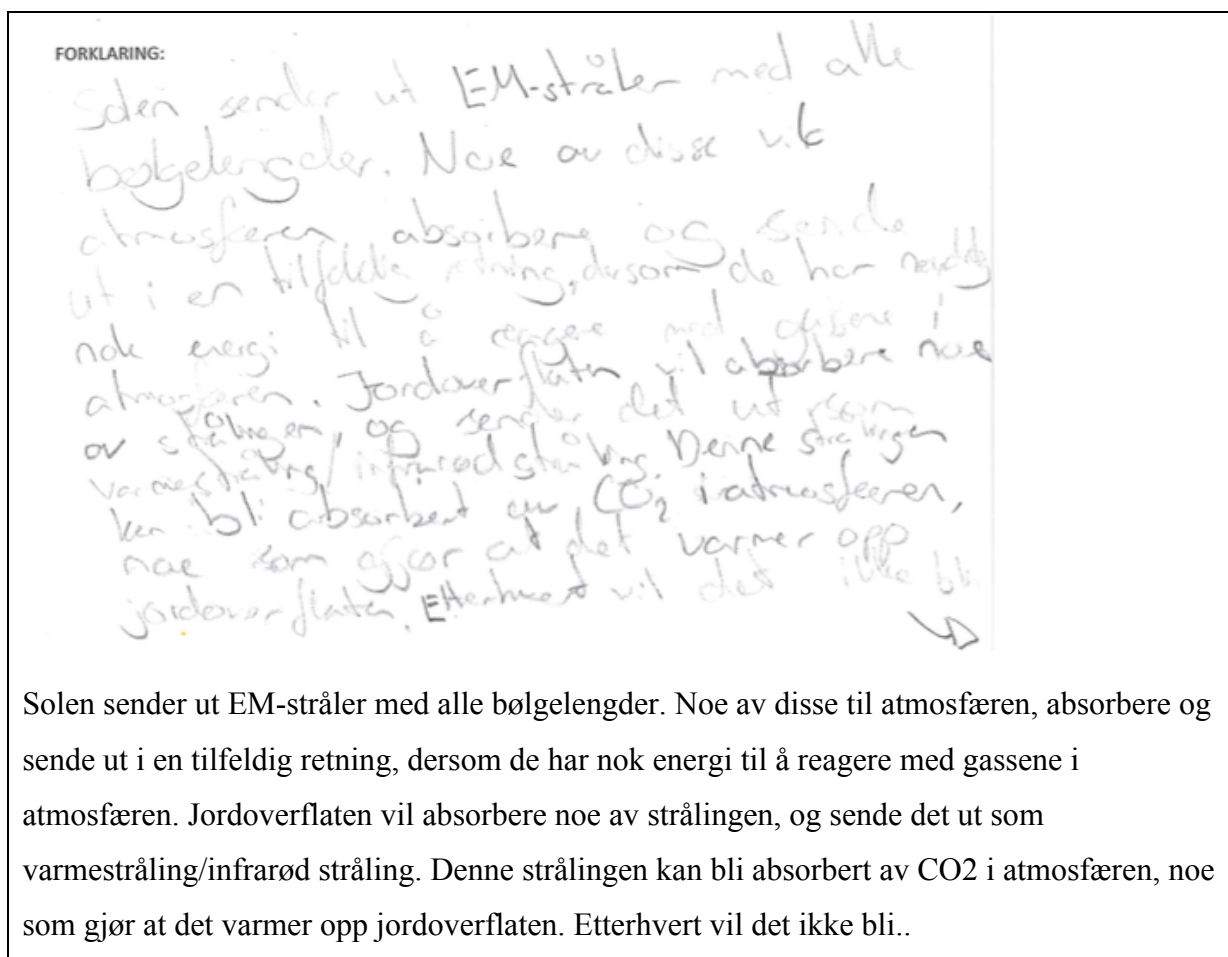 FORKLARING:
Solen sender ut EM-stråler med alle
bølgelengder. Noe av disse vil
atmosfæren absorbere og sende
ut i en tilfeldig retning, dersom de har
nok energi til å reagere med gassene i
atmosfæren. Jordoverflaten vil absorbere noe
av strålingen, og sender det ut som
varmestråling/infrarød stråling. Denne strålingen
kan bli absorbert av CO₂ i atmosfæren,
noe som gjør at det varmer opp
jordoverflaten. Etterhvert vil det ikke bli
Solen sender ut EM-stråler med alle bølgelengder. Noe av disse til atmosfæren, absorbere og
sende ut i en tilfeldig retning, dersom de har nok energi til å reagere med gassene i
atmosfæren. Jordoverflaten vil absorbere noe av strålingen, og sende det ut som
varmestråling/infrarød stråling. Denne strålingen kan bli absorbert av CO2 i atmosfæren, noe
som gjør at det varmer opp jordoverflaten. Etterhvert vil det ikke bli..